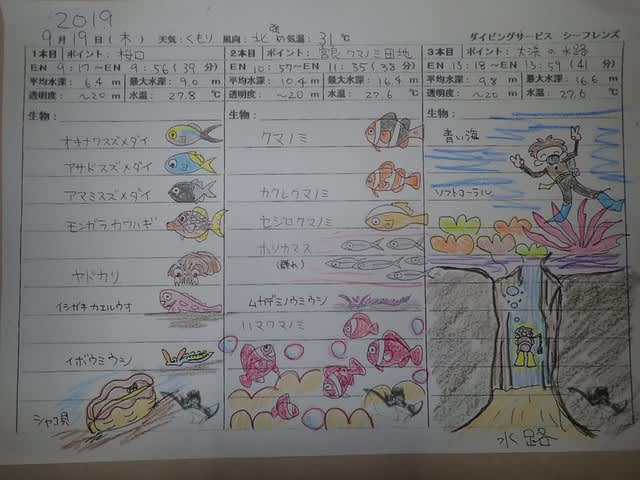 2019
9月19日(木) 天気:くもり 風向:北 強め 気温:31℃ ダイビングサービス シーフレンズ
1本目 ポイント:梅口
EN 9:17~EN 9:56(39分)
平均水深: 6.4 m 最大水深: 9.0 m
透明度: ~20m 水温: 27.8 ℃
生物:
オキナワスズメダイ
アサドスズメダイ
アマミスズメダイ
モンガラカワハギ
ヤドカリ
イシガキカエルウオ
イボウミウシ
シャコ貝
2本目 ポイント: クマノミ団地
EN 10:57~EN 11:35(38分)
平均水深: 10.4m 最大水深: 16.4m
透明度: ~20m 水温: 27.6 ℃
生物:
クマノミ
カクレクマノミ
セジロクマノミ
ホソカマス
(群れ)
ムカデミノウミウシ
ハマクマノミ
3本目 ポイント:大浜の水路
EN 13:18~EN 13:59(41分)
平均水深: 9.8 m 最大水深: 16.6 m
透明度: ~20m 水温: 27.6 ℃
生物:
青い海
ソフトコーラル
水路